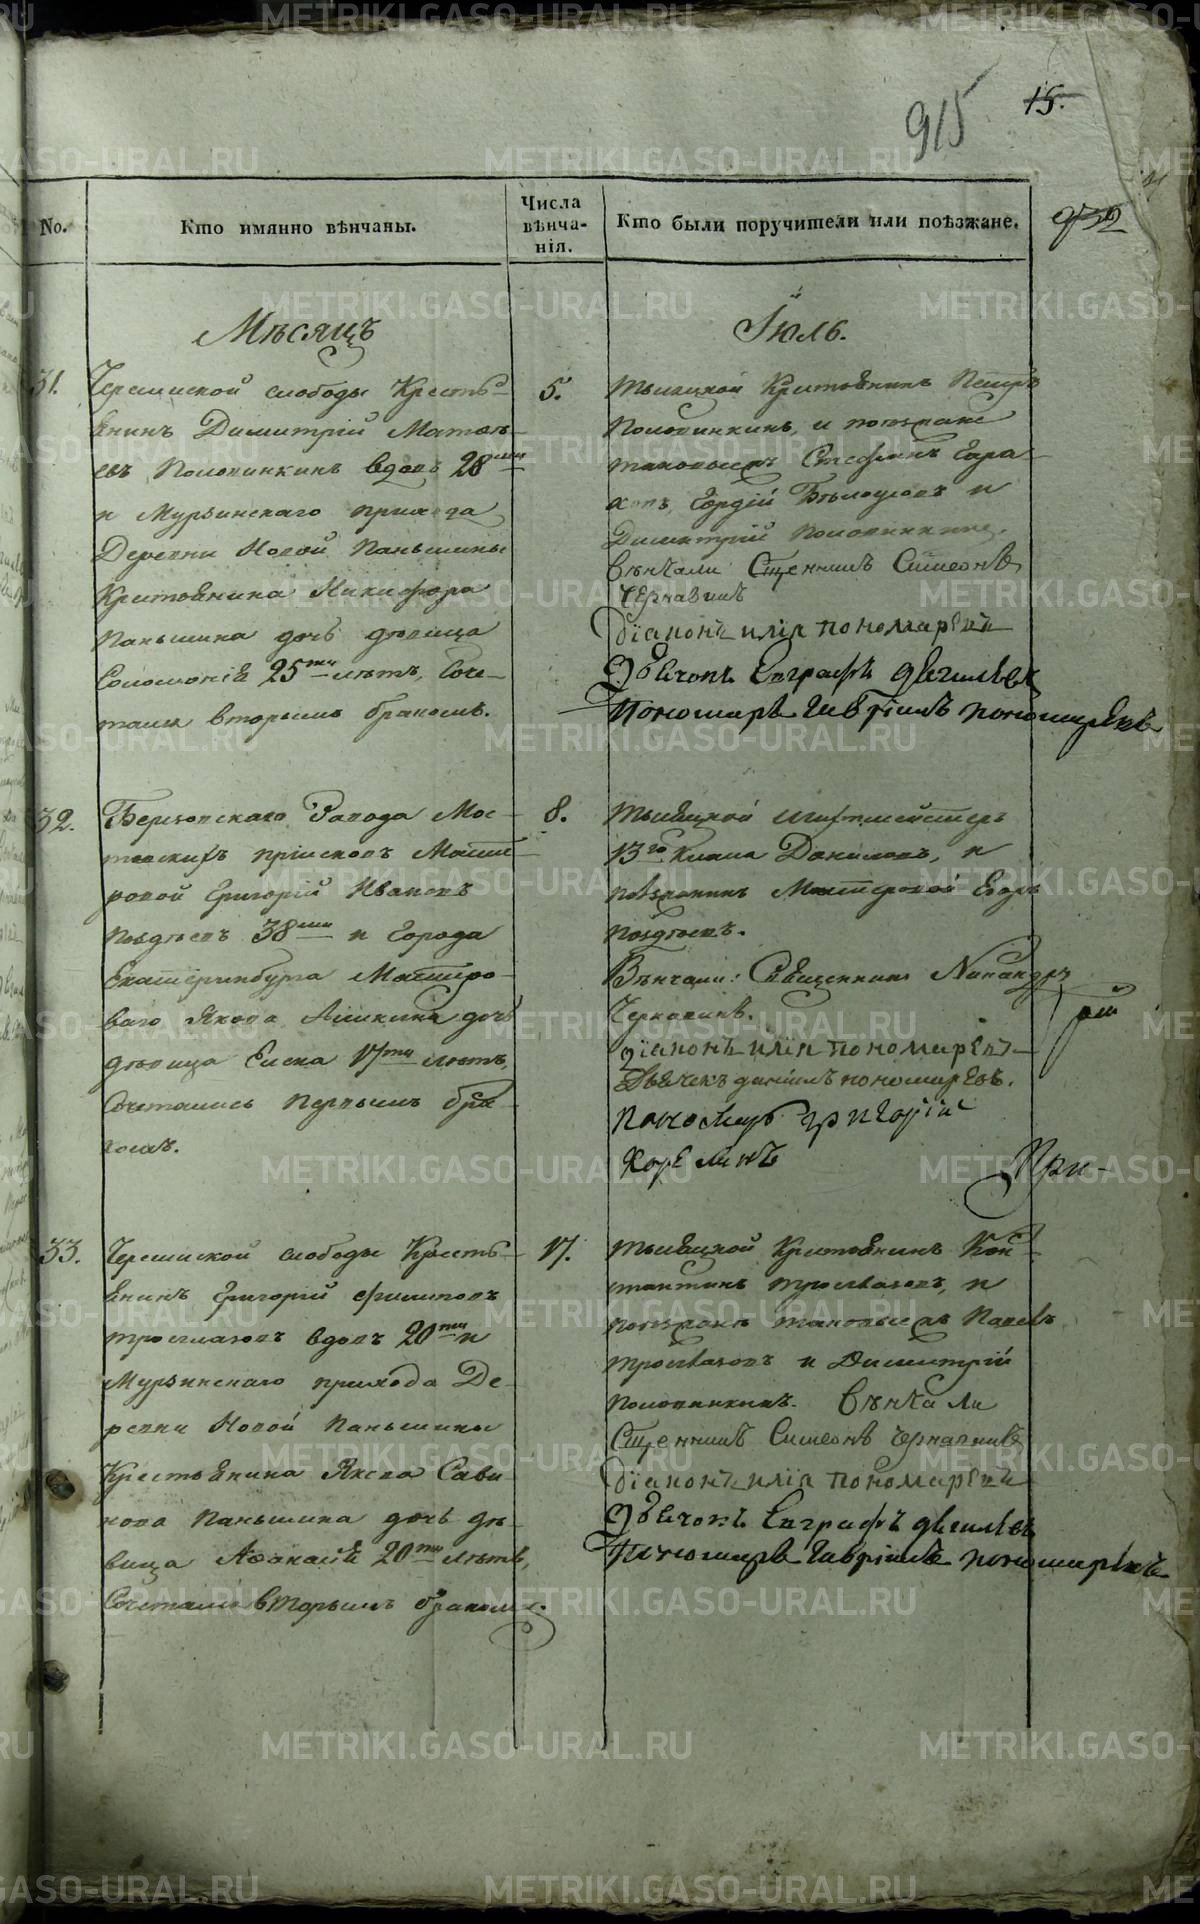 915 15.
No.
Кто имянно вѣнчаны.
Числа
вѣнча-
нія.
Кто были поручители или поѣзжане.
932
Мѣсяцъ
Іюль.
31.
Черемиской слободы Кресть-
янинъ Димитрій Матвѣ-
евъ Половинкинъ вдовъ 28ми
и Мурзинскаго прихода
Деревни Новой Паньшины
Крестьянина Никифора
Паньшина дочь дѣвица
Соломонія 25ти лѣтъ, Соче-
тались вторымъ бракомъ.
5.
Тысяцкой Крестьянинъ Петръ
Половинкинъ, и поѣзжане
таковыежъ Стефанъ
Гордій Бѣлоусовъ и
Димитрій Половинкинъ.
вѣнчали Сщенникъ Симеонъ
Чернавинъ
Діаконъ илія пономаревъ
Дьячокъ Евграфъ
Пономарь Гавріилъ пономаревъ
32.
Березовскаго Завода Мос-
товскихъ пріисковъ Масте-
ровой Григорій Ивановъ
Поздѣевъ 38ми и Города
Екатеринбурга Мастеро-
ваго Якова дочь
дѣвица Елена 17ти лѣтъ,
Сочетались Первымъ бра-
комъ.
8.
Тысяцкой Шихтмейстеръ
13го класса Даниловъ, и
поѣзжанинъ Мастеровой Егоръ
Поздѣевъ.
Вѣнчали: Священникъ Никандръ
Чернавинъ.
Діаконъ илія пономаревъ
Дьячекъ даніилъ пономаревъ.
Пономарь григорій
Хорелинъ
При-
33.
Черемиской слободы Кресть-
янинъ Григорій Филиповъ
Трясглазовъ вдовъ 20ти и
Мурзинскаго прихода Де-
ревни Новой Паньшины
Крестьянина Якова Сави-
нова Паньшина дочь дѣ-
вица Афанасія 20ти лѣтъ,
Сочетались вторымъ бракомъ.
17.
Тысяцкой Крестьянинъ Кон-
стантинъ и
поѣзжане таковыежъ Павелъ
и Димитрій
Половинкинъ. Вѣнчали
Сщенникъ Симеонъ Чернавинъ
Діаконъ илія пономаревъ
Дьячокъ Евграфъ
Пономарь Гавріилъ пономаревъ